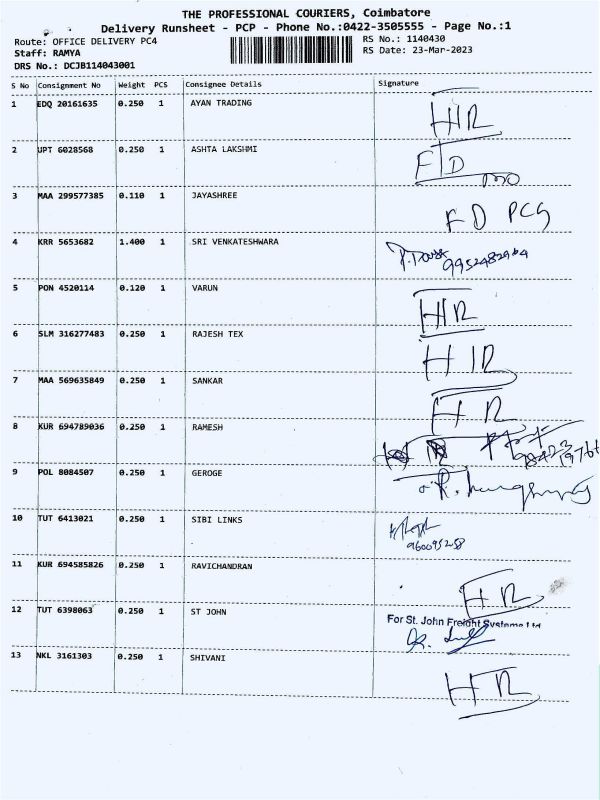 THE PROFESSIONAL COURIERS, Coimbatore
Delivery Runsheet - PCP - Phone No.:0422-3505555 - Page No.:1
Route: OFFICE DELIVERY PC4 RS No.: 1140430
Staff: RAMYA RS Date: 23-Mar-2023
DRS No.: DCJB114043001
S No Consignment No Weight PCS Consignee Details Signature
1 EDQ 20161635 0.250 1 AYAN TRADING HR
2 UPT 6028568 0.250 1 ASHTA LAKSHMI FD
3 MAA 299577385 0.110 1 JAYASHREE FD PCG
4 KRR 5653682 1.400 1 SRI VENKATESHWARA
5 PON 4520114 0.120 1 VARUN HR
6 SLM 316277483 0.250 1 RAJESH TEX HR
7 MAA 569635849 0.250 1 SANKAR HR
8 KUR 694789036 0.250 1 RAMESH
9 POL 8084507 0.250 1 GEROGE
10 TUT 6413021 0.250 1 SIBI LINKS
11 KUR 694585826 0.250 1 RAVICHANDRAN HR
12 TUT 6398063 0.250 1 ST JOHN For St. John Freight Systems Ltd
13 NKL 3161303 0.250 1 SHIVANI HR